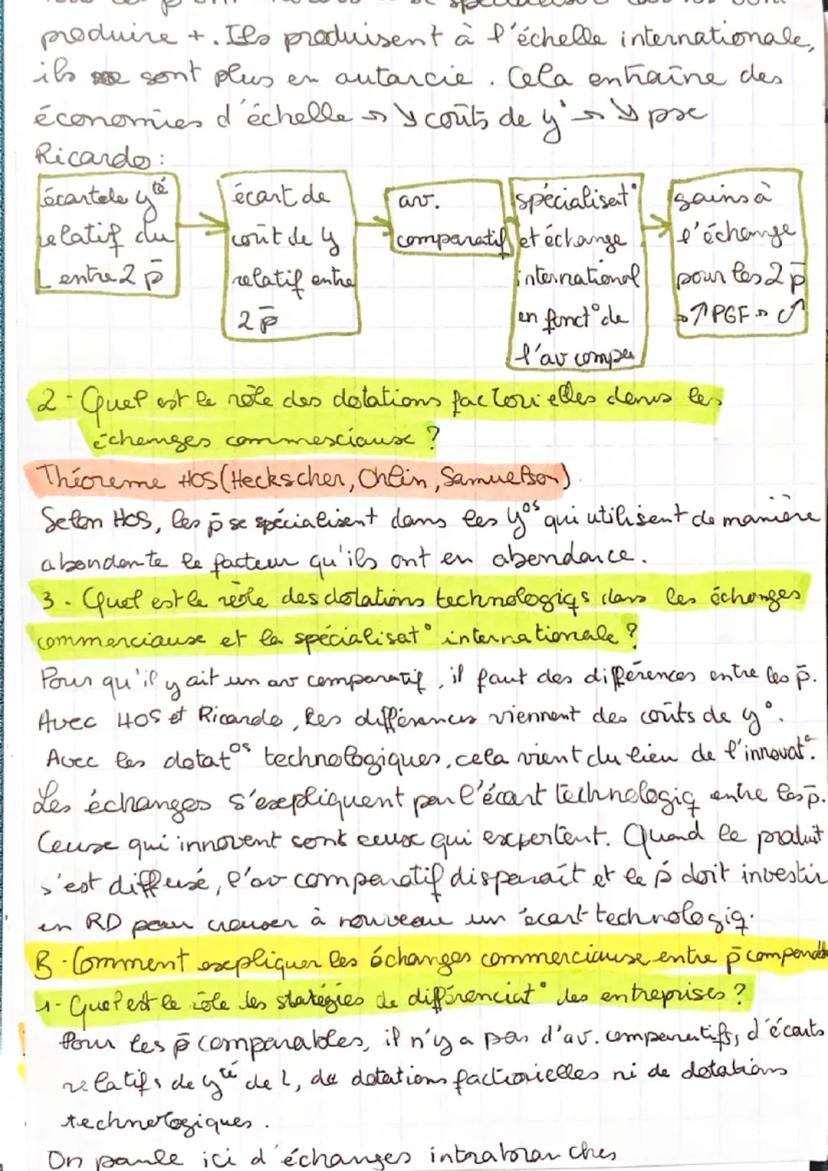 produire +. Ils produisent à l'échelle internationale,
ils sont plus en autarcie. Cela entraîne des
économies d'échelle → ↘ coûts de y° → ↘ px
Ricardo :
écart de yté
relatif du
L entre 2 p̄
écart de
coût de y
relatif entre
2 p̄
av.
comparatif
spécialisat°
et échange
international
en funct° de
l'av compa
gains à
l'échange
pour les 2 p̄
→ ↑ PGF →
2 - Quel est le rôle des dotations factorielles dans les
échanges commerciaux ?
Théoreme HOS (Heckscher, Ohlin, Samuelson)
Selon HOS, les p̄ se spécialisent dans les yos qui utilisent de manière
abondante le facteur qu'ils ont en abondance.
3 - Quel est le rôle des dotations technologiqs dans les échanges
commerciaux et la spécialisat° internationale ?
Pour qu'il y ait un av comparatif, il faut des différences entre les p̄.
Avec HOS et Ricardo, les différences viennent des coûts de y°.
Avec les dotatos technologiques, cela vient du lieu de l'innovat°.
Les échanges s'expliquent par l'écart technologiq entre les p̄.
Ceux qui innovent sont ceux qui exportent. Quand le produit
s'est diffusé, l'av comparatif disparaît et le p̄ doit investir
en RD pour creuser à nouveau un écart technologiq.
B - Comment expliquer les échanges commerciaux entre p̄ comparab
1 - Quel est le rôle les stratégies de différenciat° des entreprises ?
Pour les p̄ comparables, il n'y a pas d'av. comparatifs, d'écarts
relatifs de yté de L, de dotations factiorielles ni de dotations
technologiques.
On parle ici d'échanges intrabranches